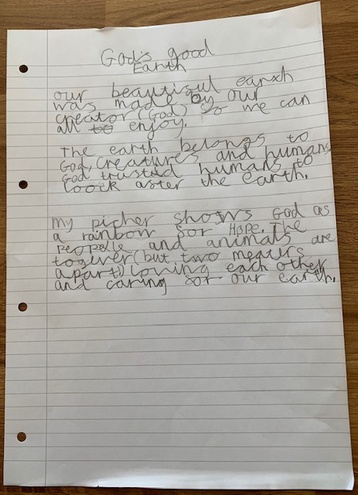 God's good
Earth
our beautiful earth
was made by our
creator (God) so we can
all to enjoy.
The earth belongs to
God, creatures, and humans.
God trusted humans to
loock after the earth.
my picher shows God as
a rainbow for Hope. The
people and animals are
togever (but two meters
apart) loving each other
and caring for our earth.